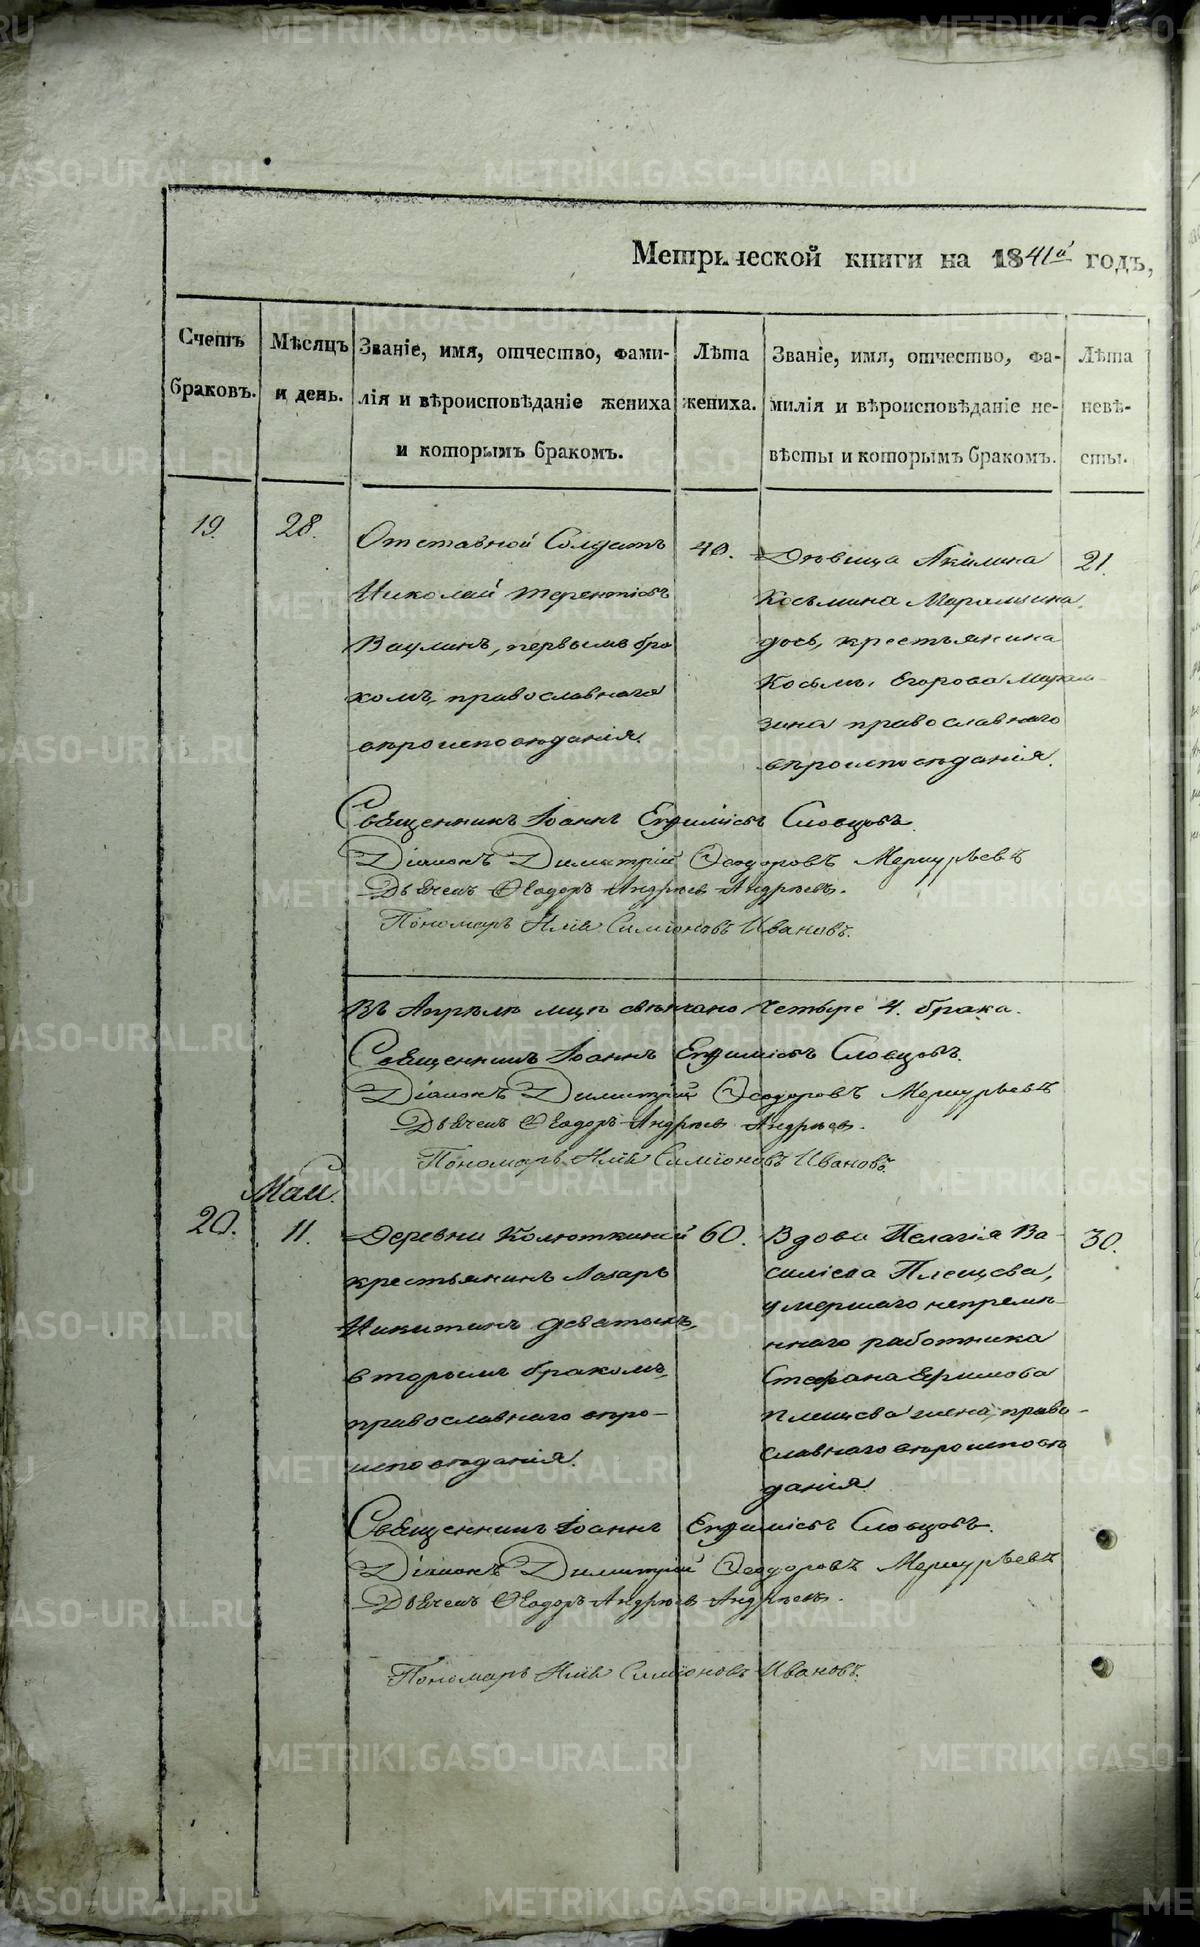 Метрической книги на 1841й годъ,
Счетъ браковъ.
Мѣсяцъ и день.
Званіе, имя, отчество, фами-
лія и вѣроисповѣданіе жениха
и которымъ бракомъ.
Лѣта
жениха.
Званіе, имя, отчество, фа-
милія и вѣроисповѣданіе не-
вѣсты и которымъ бракомъ.
Лѣта
невѣ-
сты.
19.
28.
Отставной Солдатъ
Николай Терентіевъ
Ваулинъ, первымъ бра
комъ, православнаго
вѣроисповѣданія.
40.
Дѣвица Акилина
Косьмина
дочь, крестьянина
Косьмы Егорова
зина православнаго
вѣроисповѣданія.
21.
Священникъ Іоаннъ Евфиміевъ Словцовъ.
Діаконъ Димитрій Ѳеодоровъ Меркурьевъ
Дьячекъ Ѳеодоръ Андреевъ Андреевъ.
Пономарь Илія Симіоновъ Ивановъ.
Въ Апрѣлѣ м҃цѣ свѣнчано четыре 4. брака.
Священникъ Іоаннъ Евфиміевъ Словцовъ.
Діаконъ Димитрій Ѳеодоровъ Меркурьевъ
Дьячекъ Ѳеодоръ Андреевъ Андреевъ.
Пономарь Илія Симіоновъ Ивановъ.
Маій.
20.
11.
Деревни Колюткиной
крестьянинъ Лазарь
Никитинъ Деватыхъ,
вторымъ бракомъ,
православнаго вѣро-
исповѣданія.
60.
Вдова Пелагія Ва-
силіева Плещева,
умершаго непремѣ-
ннаго работника
Стефана Ефимова
Плещева жена, право-
славнаго вѣроисповѣ
данія
30.
Священникъ Іоаннъ Евфиміевъ Словцовъ.
Діаконъ Димитрій Ѳеодоровъ Меркурьевъ
Дьячекъ Ѳеодоръ Андреевъ Андреевъ.
Пономарь Илія Симіоновъ Ивановъ.
METRIKI.GASO-URAL.RU